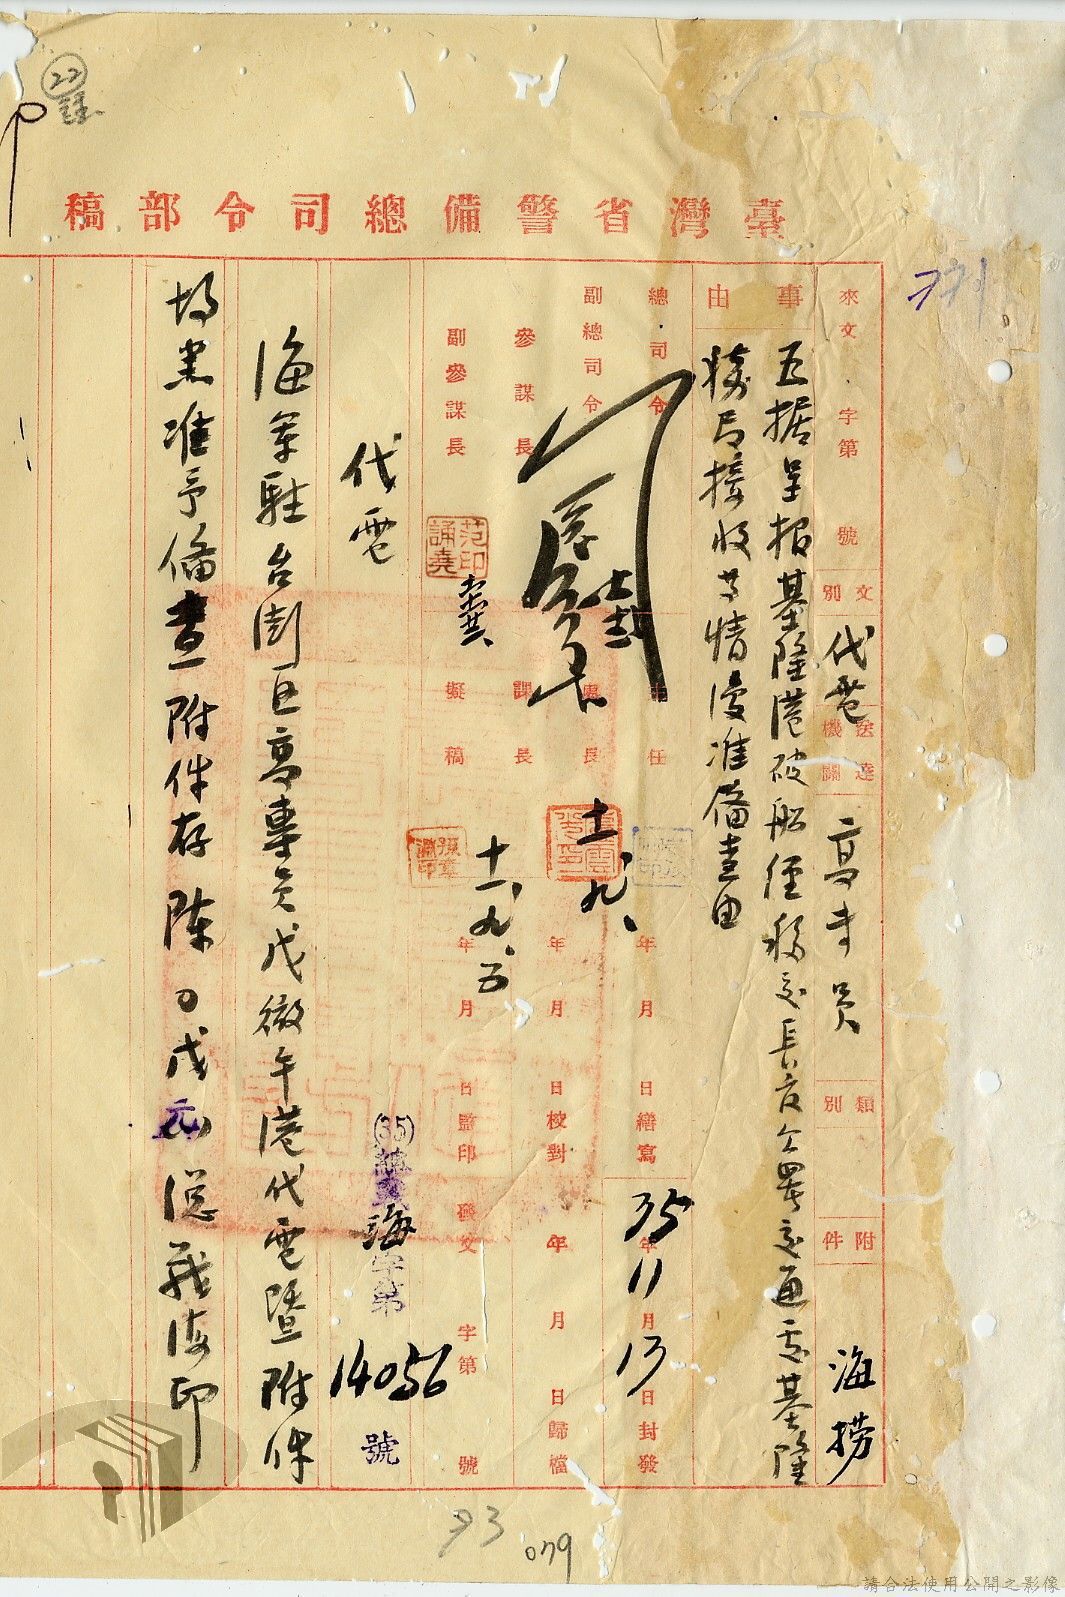 臺灣省警備總司令部稿
來文 字第 號
文別 代電
送達機關 高專員
類別
附件
海撈
事由
五据呈报基隆港破船經移交長官公署交通處基隆
獲局接收等情復准備查由
總司令
副總司令
參謀長
副參謀長
范誦堯印
主任
處長
課長
擬稿
十一、九、
十一、九、五
年 月 日繕寫
年 月 日校對
年 月 日監印
35年11月13日封發
年 月 日歸檔
發文 字第 號
(35)
海字第14056號
代電
海軍駐台澎區高專員戌微午港代電暨附件
均悉准予備查附件存陈〇戌元總戰海印
22
771
73
079
請合法使用公開之影像